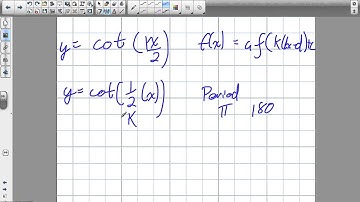 y = cot(x/2) f(x) = af(k(x-d)+c
y = cot(1/2 (x)) Period
K π 180